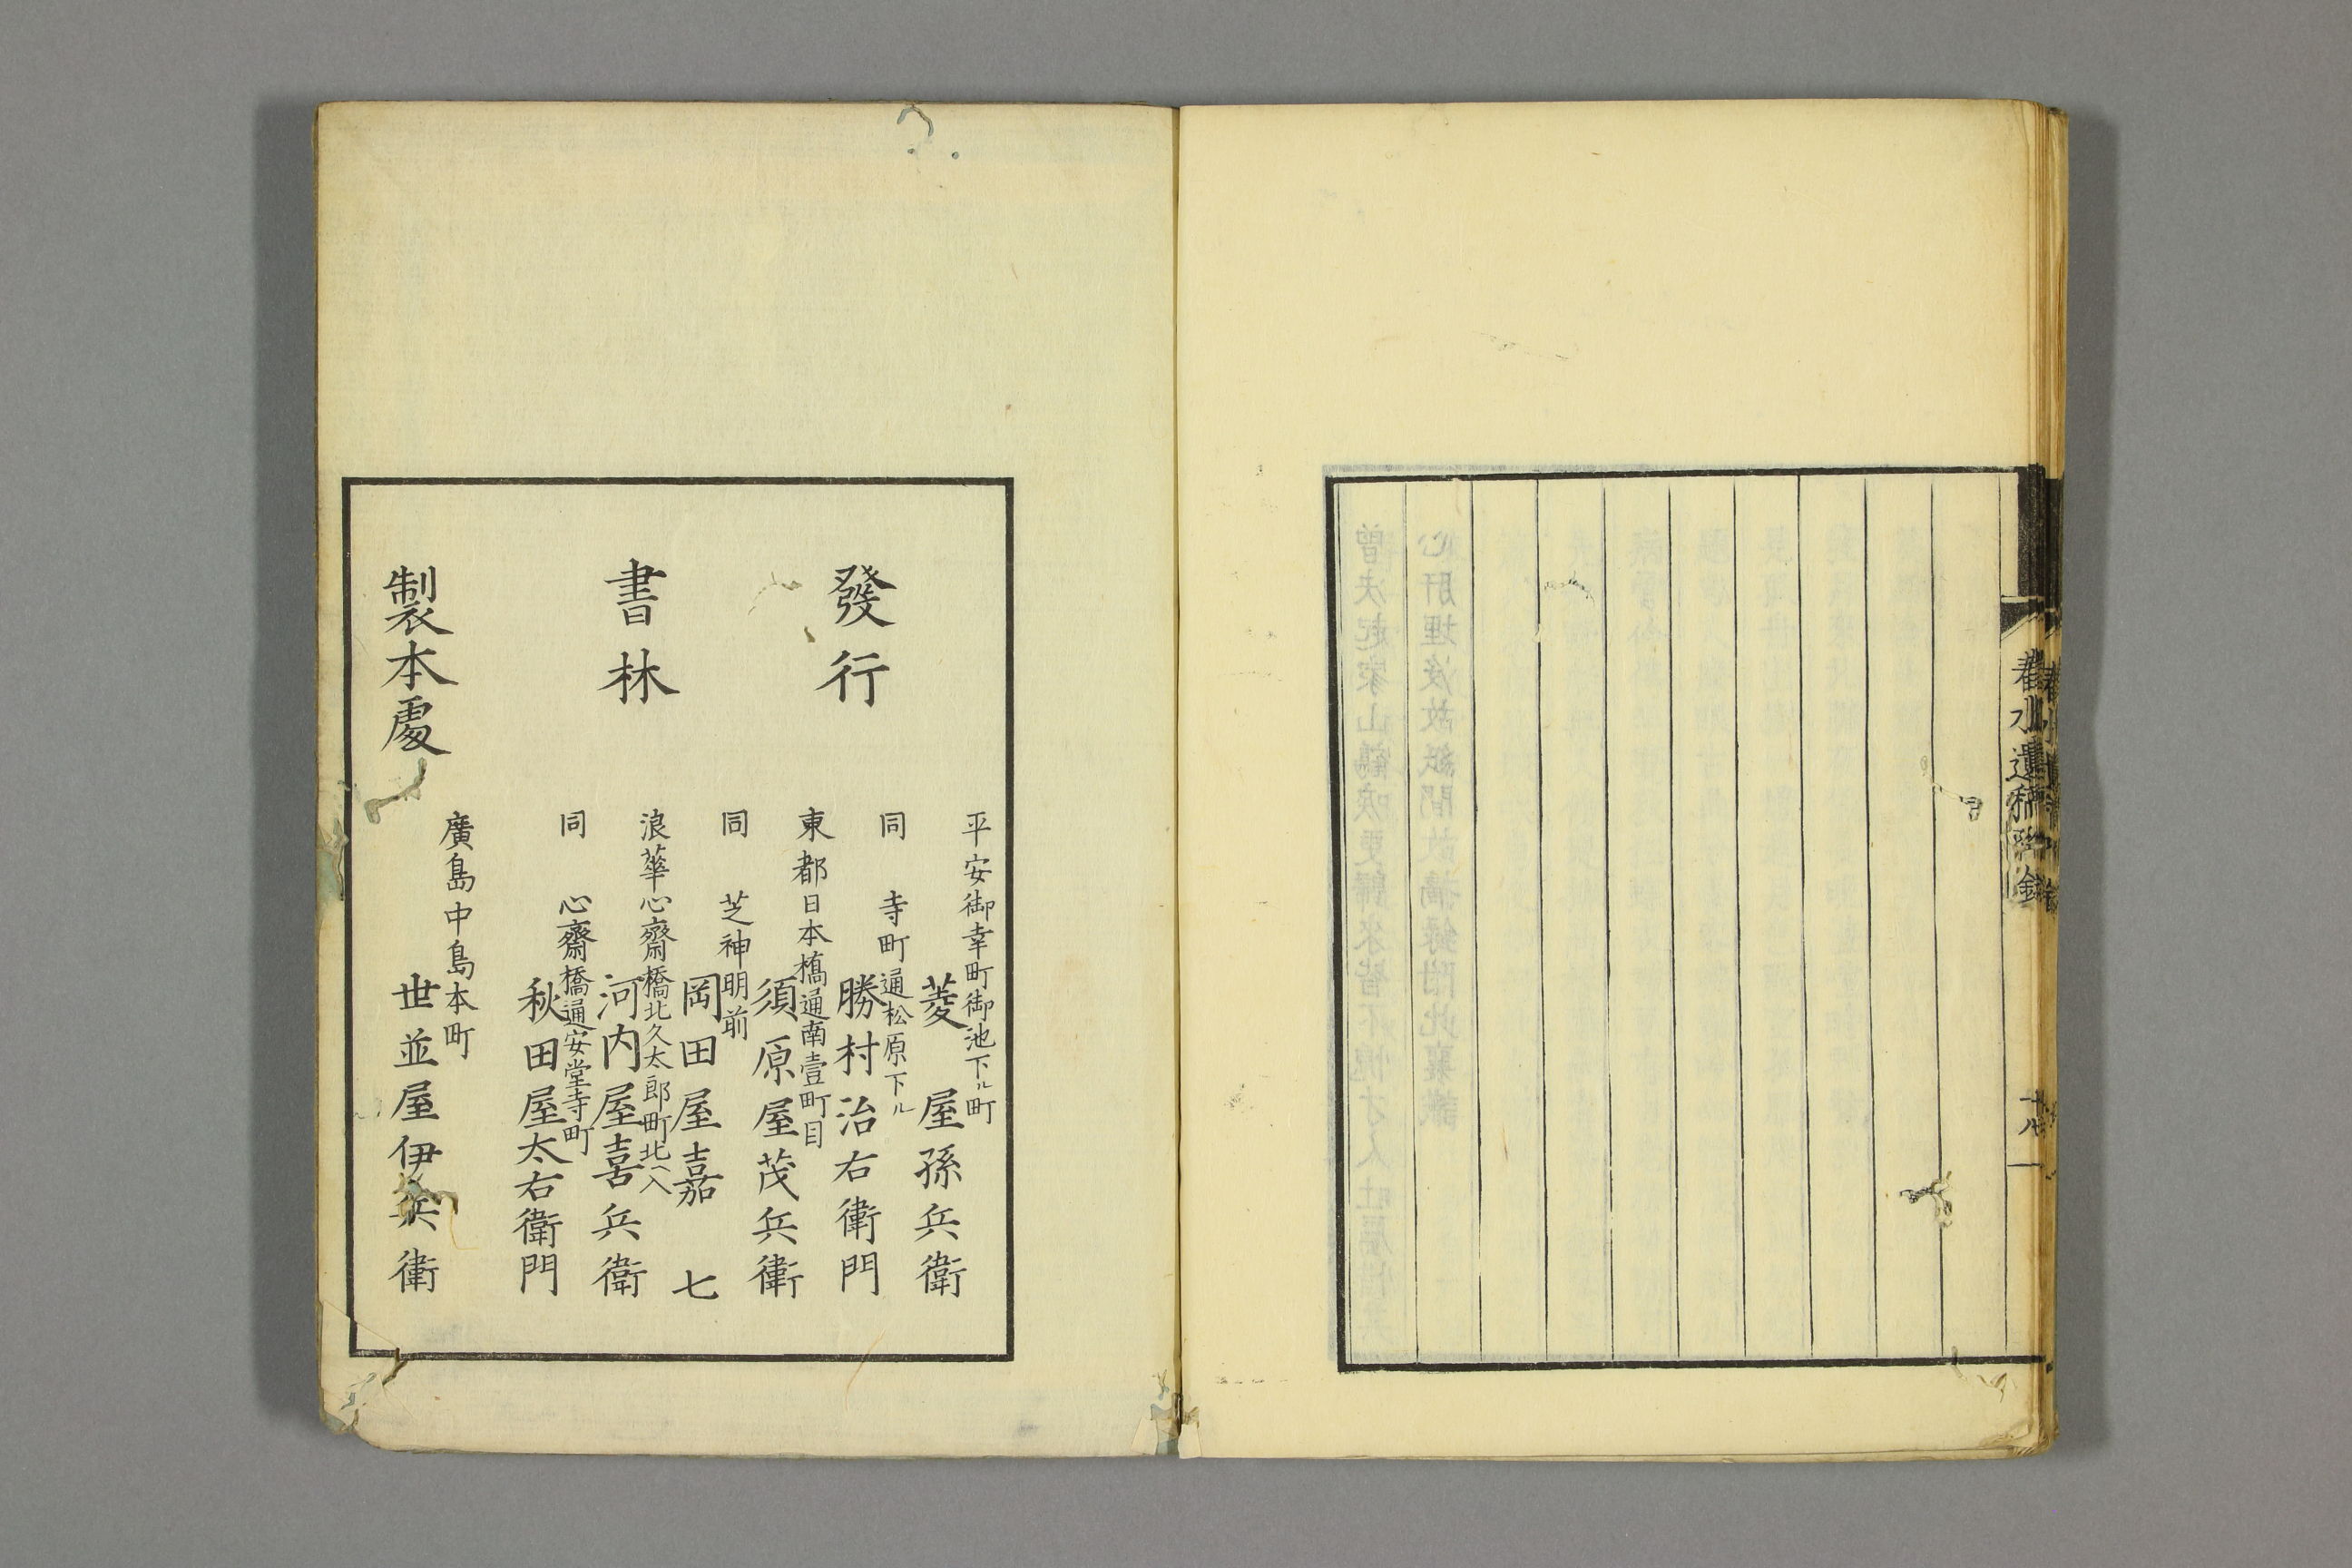 春水遺稿附錄
十八
發行
書林
平安御幸町御池下ル町
菱屋孫兵衛
同寺町通松原下ル
勝村治右衛門
東都日本橋通南壹町目
須原屋茂兵衛
同芝神明前
岡田屋嘉七
浪華心齋橋北久太郎町北ヘ入
河内屋喜兵衛
同心齋橋通安堂寺町
秋田屋太右衛門
製本處
廣島中島本町
世並屋伊兵衛